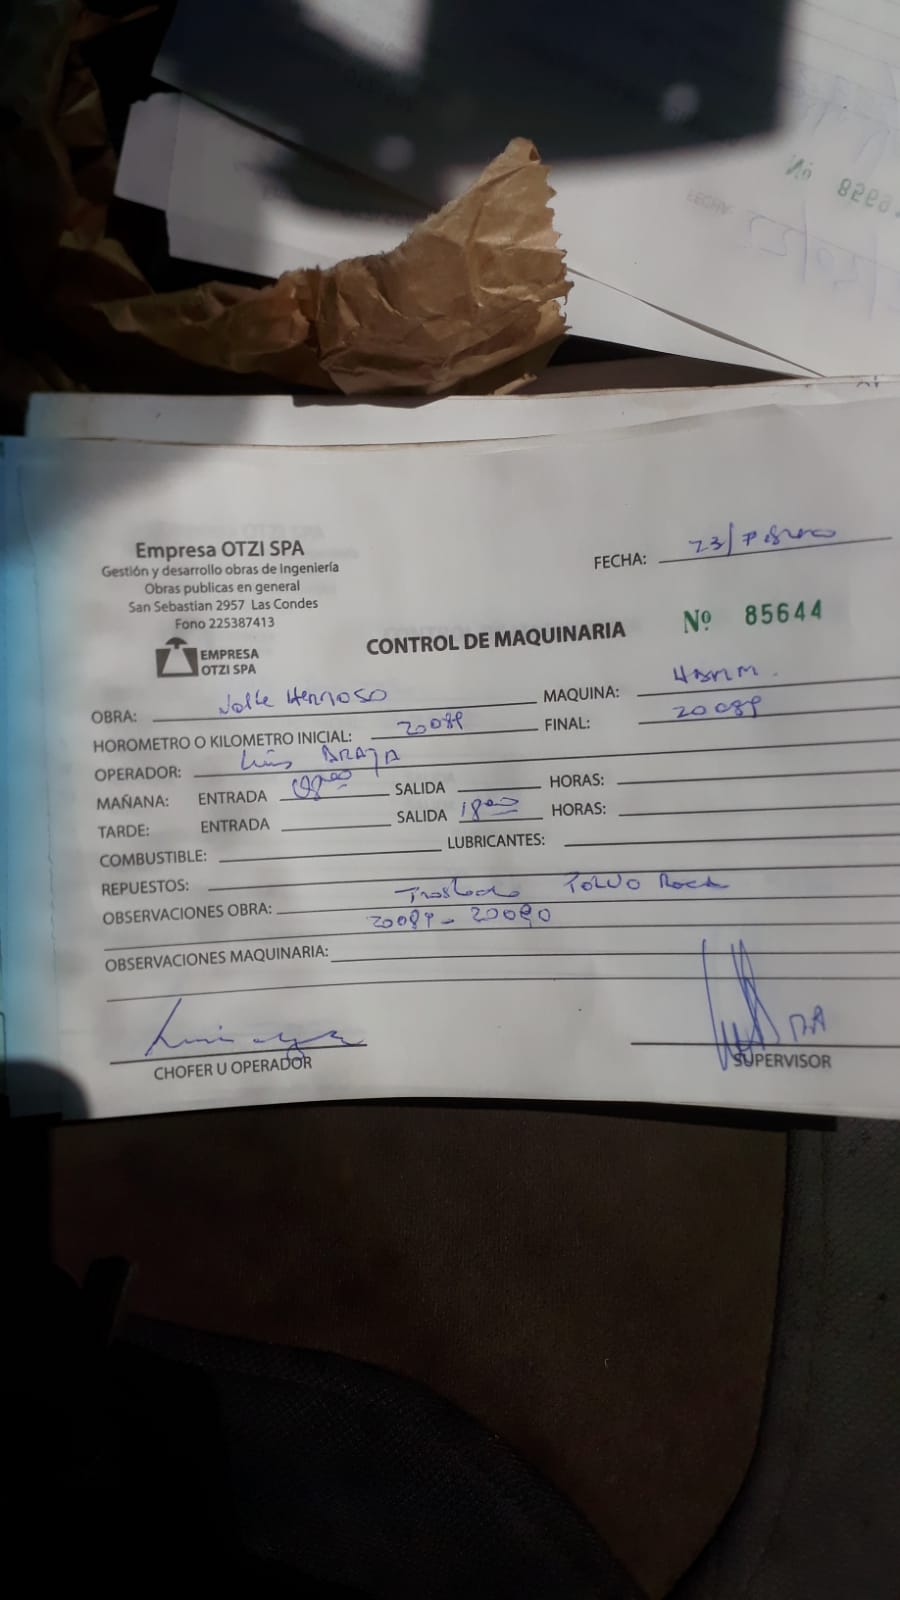 Nº 8569
FECHA:
Empresa OTZI SPA
Gestión y desarrollo obras de Ingeniería
Obras publicas en general
San Sebastian 2957 Las Condes
Fono 225387413
EMPRESA
OTZI SPA
FECHA: 23/
CONTROL DE MAQUINARIA
Nº 85644
OBRA: Valle Hermoso MAQUINA:
HOROMETRO O KILOMETRO INICIAL: 20089 FINAL: 20089
OPERADOR: Luis ARAYA
MAÑANA: ENTRADA 08:00 SALIDA HORAS:
TARDE: ENTRADA SALIDA 18:00 HORAS:
COMBUSTIBLE: LUBRICANTES:
REPUESTOS:
OBSERVACIONES OBRA: Traslado Polvo Roca
20089 - 20090
OBSERVACIONES MAQUINARIA:
CHOFER U OPERADOR
SUPERVISOR